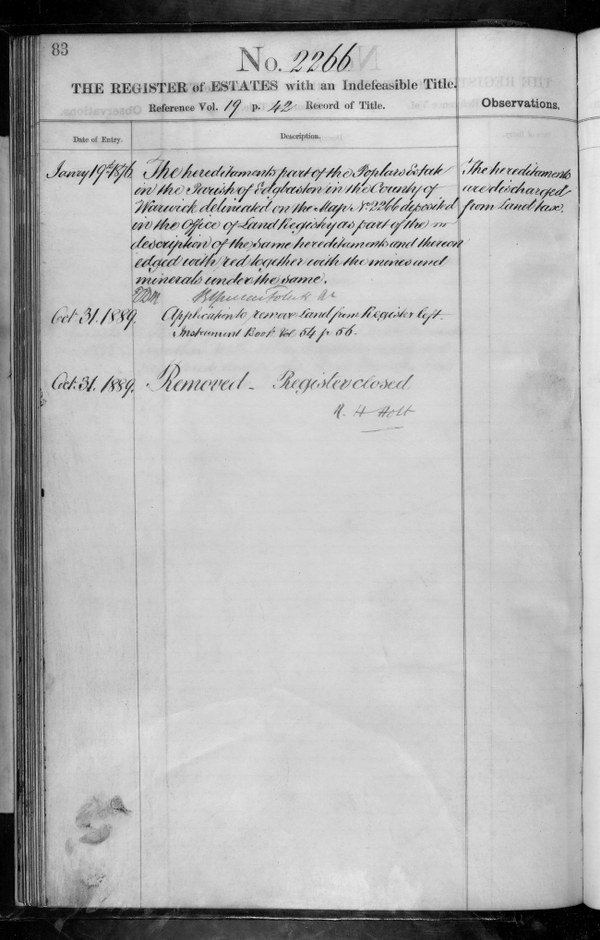 83
No. 2266
THE REGISTER of ESTATES with an Indefeasible Title.
Reference Vol. 19 p. 42 Record of Title.
Observations.
Date of Entry.
Description.
Janry 19th 1876. The hereditaments part of the Poplars Estate
in the Parish of Edgbaston in the County of
Warwick delineated on the Map No 2266 deposited
in the Office of Land Registry as part of the
description of the same hereditaments and thereon
edged with red together with the mines and
minerals under the same.
The hereditaments
are discharged
from Land tax.
Oct 31. 1889. Application to remove Land from Register left
Instrument Book Vol 54 p 56.
Oct. 31. 1889. Removed - Register closed
R. H Holt